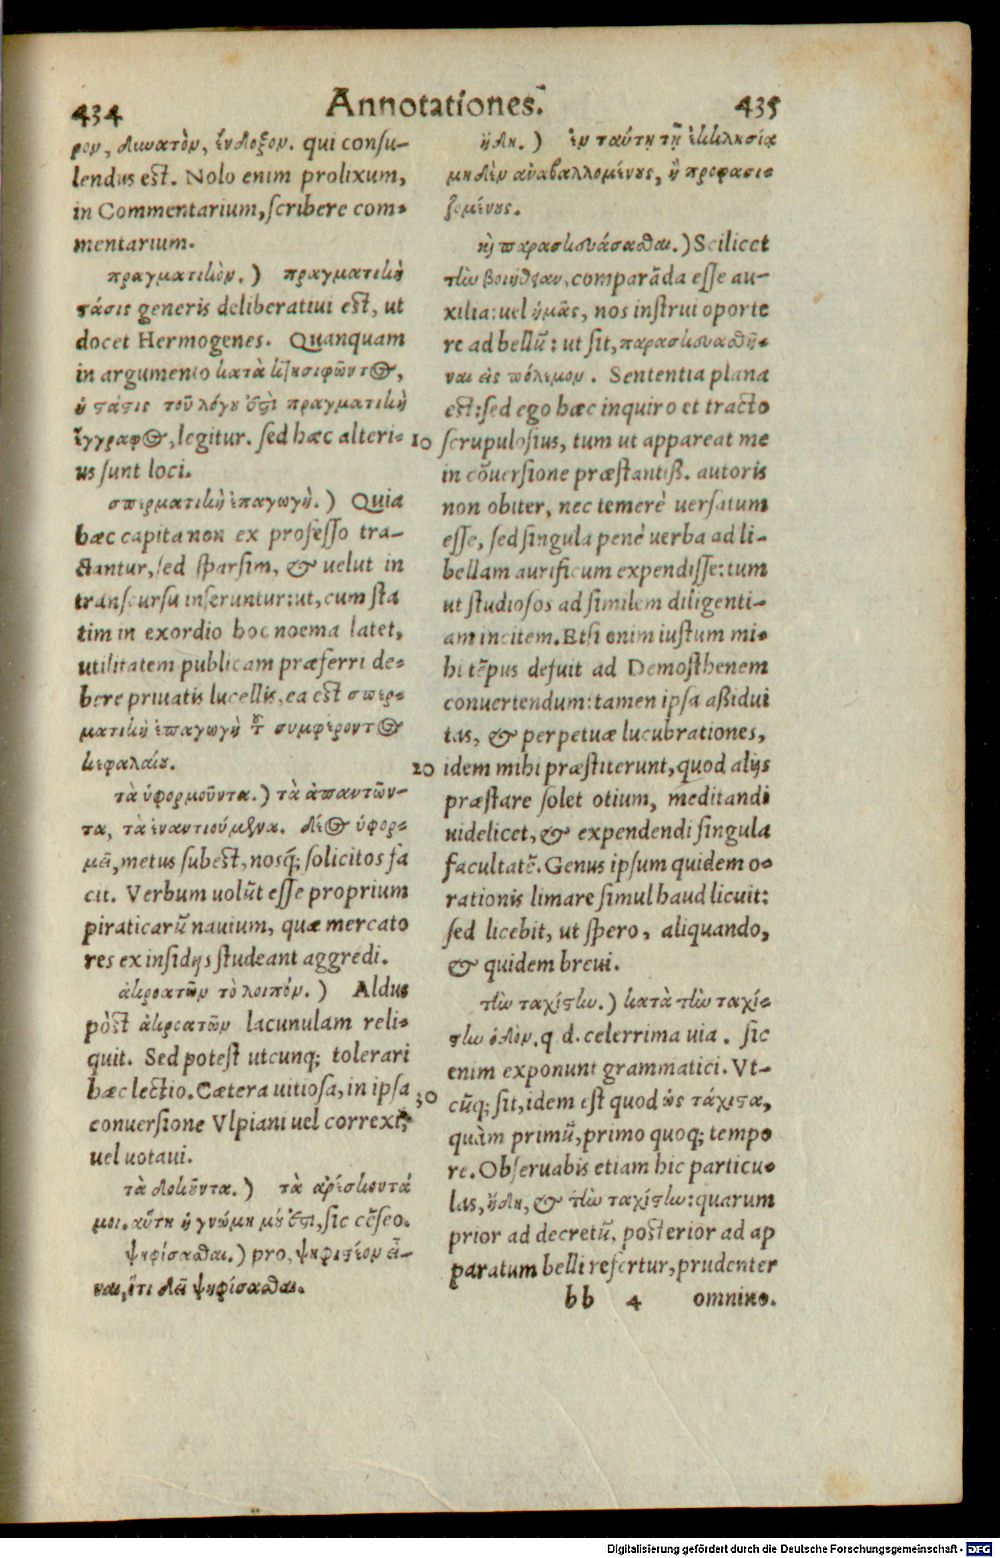 434 Annotationes. 435
ρον, δυνατὸν, ἔνδοξον. qui consu-
lendus est. Nolo enim prolixum,
in Commentarium, scribere com-
mentarium.
πραγματικὸν.) πραγματικὴ
στάσις generis deliberatiui est, ut
docet Hermogenes. Quanquam
in argumento κατὰ κτησιφῶντ⊙,
ἡ στάσις τοῦ λόγου ἐστὶ πραγματικὴ
ἔγγραφ⊙, legitur. sed hæc alteri-
us sunt loci.
σπερματικὴ ἐπαγωγὴ.) Quia
hæc capita non ex professo tra-
ctantur, sed sparsim, & uelut in
transcursu inseruntur: ut, cum sta
tim in exordio hoc noema latet,
utilitatem publicam præferri de-
bere priuatis lucellis, ea est σπερ-
ματικὴ ἐπαγωγὴ τοῦ συμφέροντ⊙
κεφαλαίου.
τὰ ὑφορμοῦντα.) τὰ ἀπαντῶν-
τα, τὰ ἐναντιούμενα. δέ⊙ ὑφορ-
μεῖ, metus subest, nosq́; solicitos fa
cit. Verbum uolūt esse proprium
piraticarū nauium, quæ mercato
res ex insidijs studeant aggredi.
ἀκροατῶν τὸ λοιπόν.) Aldus
pòst ἀκροατῶν lacunulam reli-
quit. Sed potest utcunq; tolerari
hæc lectio. Cætera uitiosa, in ipsa
conuersione Vlpiani uel correxi,
uel uotaui.
τὰ δοκοῦντα.) τὰ ἀρέσκοντά
μοι. αὕτη ἡ γνώμη μού ἐστι, sic cēseo.
ψηφίσασθαι.) pro, ψηφιστέον εἶ-
ναι, ὅτι δεῖ ψηφίσασθαι.
ἤδη.) ἐν ταύτῃ τῇ ἐκκλησίᾳ
μηδὲν ἀναβαλλομένους, ἢ προφασι-
ζομένους.
καὶ παρασκευάσασθαι.) Scilicet
τὴν βοήθειαν, comparāda esse au-
xilia: uel ἡμᾶς, nos instrui oporte
re ad bellū: ut sit, παρασκευασθῆ-
ναι εἰς πόλεμον. Sententia plana
est: sed ego hæc inquiro et tracto
10 scrupulosius, tum ut appareat me
in cōuersione præstantiß. autoris
non obiter, nec temerè uersatum
esse, sed singula penè uerba ad li-
bellam aurificum expendisse: tum
ut studiosos ad similem diligenti-
am incitem. Etsi enim iustum mi-
hi tēpus defuit ad Demosthenem
conuertendum: tamen ipsa aßidui
tas, & perpetuæ lucubrationes,
20 idem mihi præstiterunt, quod alijs
præstare solet otium, meditandi
uidelicet, & expendendi singula
facultatē. Genus ipsum quidem o-
rationis limare simul haud licuit:
sed licebit, ut spero, aliquando,
& quidem breui.
τὴν ταχίστην.) κατὰ τὴν ταχί-
στην ὁδὸν. q d. celerrima uia. sic
enim exponunt grammatici. Vt-
30 cūq; sit, idem est quod ὡς τάχιστα,
quàm primū, primo quoq; tempo
re. Obseruabis etiam hic particu-
las, ἤδη, & τὴν ταχίστην: quarum
prior ad decretū, posterior ad ap
paratum belli refertur, prudenter
bb 4 omnino.
Digitalisierung gefördert durch die Deutsche Forschungsgemeinschaft - DFG